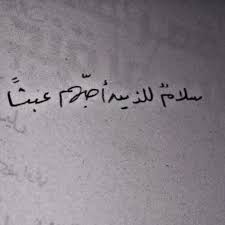 سلامٌ للذين أحبّهم عبثاً